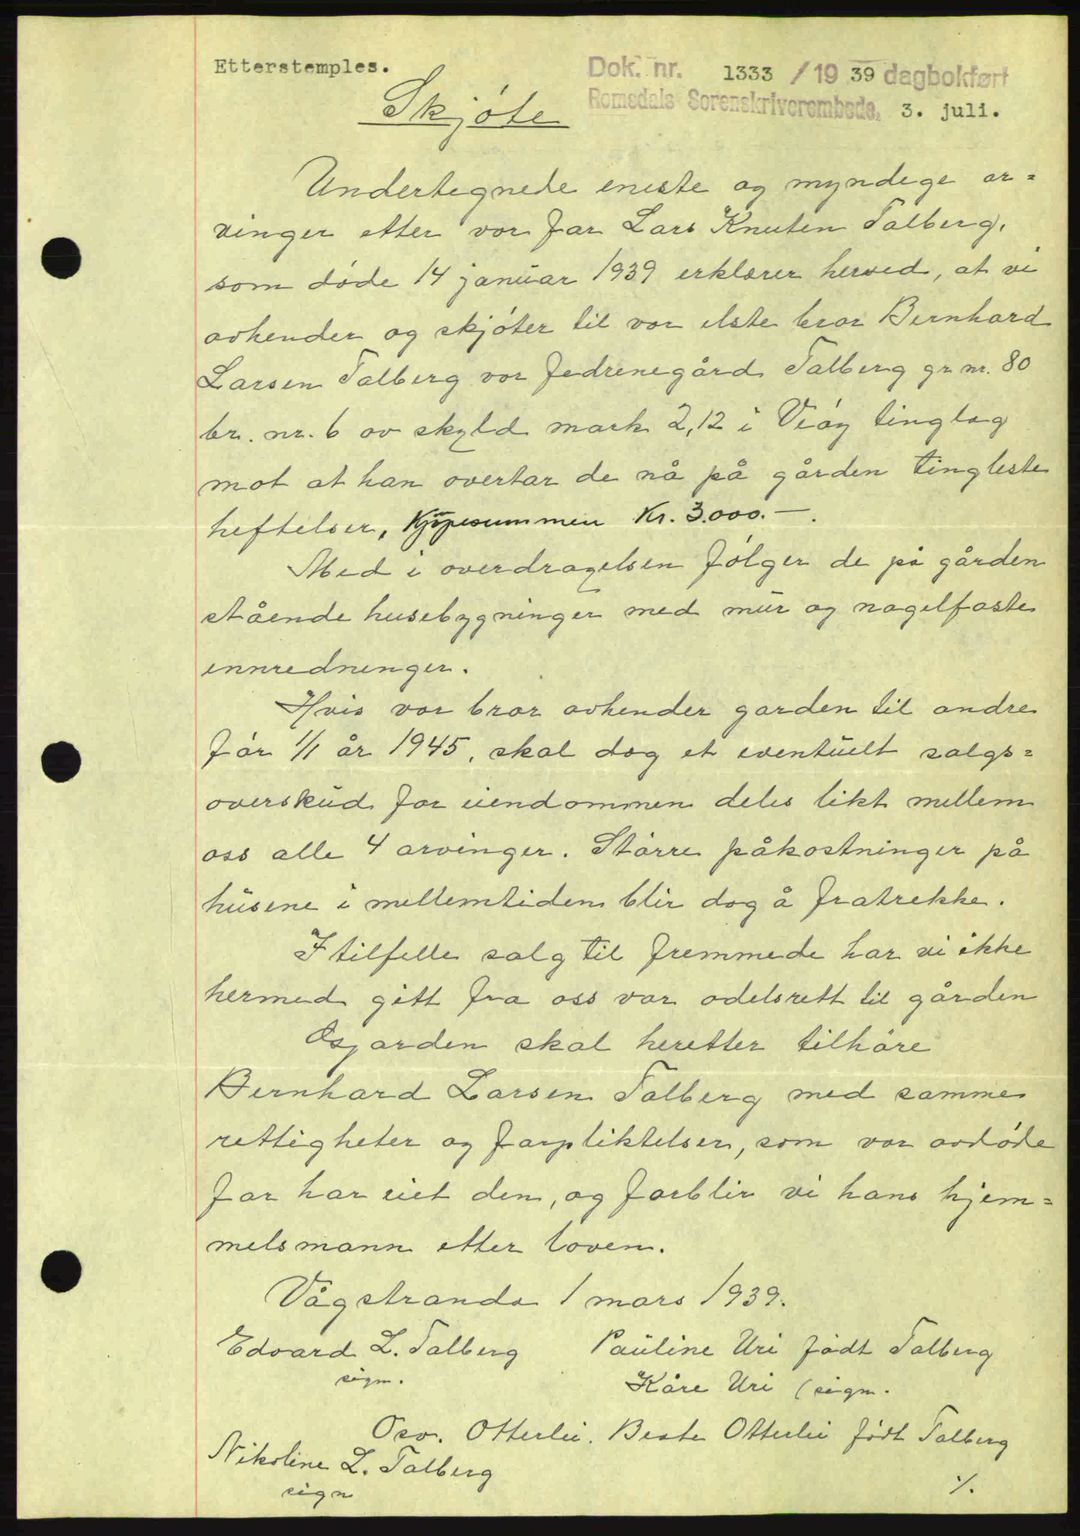 Etterstemples.
Dok. nr. 1333 / 19 39 dagbokført
Romsdals Sorenskriverembede, 3. juli.
Skjøte
Undertegnede eneste og myndige ar=
vinger etter vor far Lars Knuten Talberg,
som døde 14 januar 1939 erklærer herved, at vi
avhender og skjøter til vor elste bror Bernhard
Larsen Talberg vor fedrenegård Talberg gr nr. 80
br. nr. 6 av skyld mark 2,12 i Veøy tinglag
mot at han overtar de nå på gården tingleste
heftelser, Kjøpesummen Kr. 3.000.-.
Med i overdragelsen følger de på gården
stående husebygninger med mur og nagelfaste
ennredninger.
Hvis vor bror avhender garden til andre
før 1/1 år 1945, skal dog et eventuelt salgs=
overskud for eiendommen deles likt mellem
oss alle 4 arvinger. Større påkostninger på
husene i mellemtiden blir dog å fratrekke.
I tilfelle salg til fremmede har vi ikke
hermed gitt fra oss vor odelsrett til gården
skal heretter tilhøre
Bernhard Larsen Talberg med samme
rettigheter og forpliktelser, som vor avdøde
far har eiet den, og forblir vi hans hjem=
melsmann etter loven.
Vågstranda 1 mars 1939.
Edvard L. Talberg Pauline Uri født Talberg
sign. Kåre Uri (sign.
Osv. Otterlei. Beate Otterlei født Talberg
Nikoline L. Talberg
sign
./.